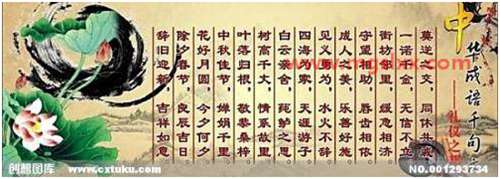 中华成语千句文
——礼仪之
莫逆之交，同休共戚
一诺千金，无信不立
街坊邻里，缓急相济
守望相助，唇齿相依
成人之美，乐善好施
见义勇为，水火不辞
四海为家，天涯游子
白云亲舍，莼鲈之思
树高千丈，情系故里
叶落归根，敬恭桑梓
中秋佳节，婵娟千里
花好月圆，今夕何夕
除夕春节，良辰吉日
辞旧迎新，吉祥如意
创想图库 www.cxtuku.com
NO.001293734